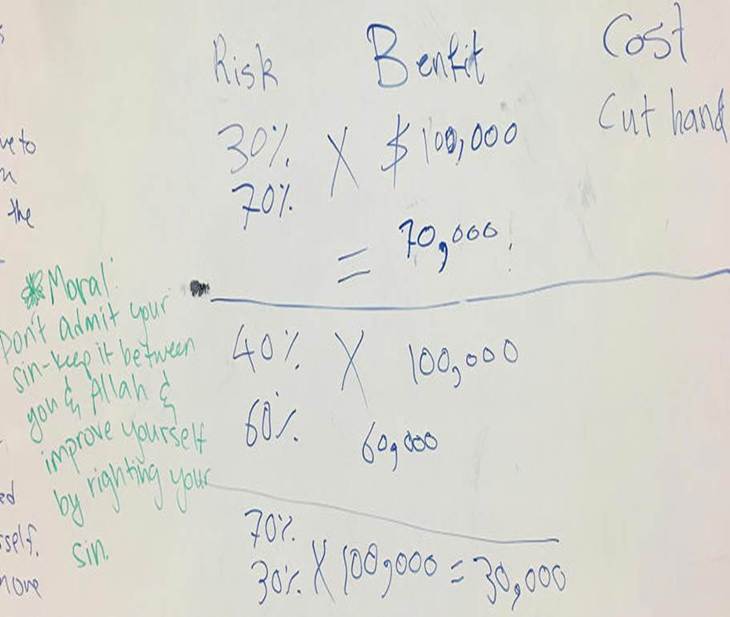 Risk Benfit Cost
30% X $100,000 Cut hand
70%
= 70,000
40% X 100,000
60% 60,000
70%
30% X 100,000 = 30,000
Moral:
Don't admit your
sin-keep it between
you & Allah &
improve yourself
by righting your
sin.
the